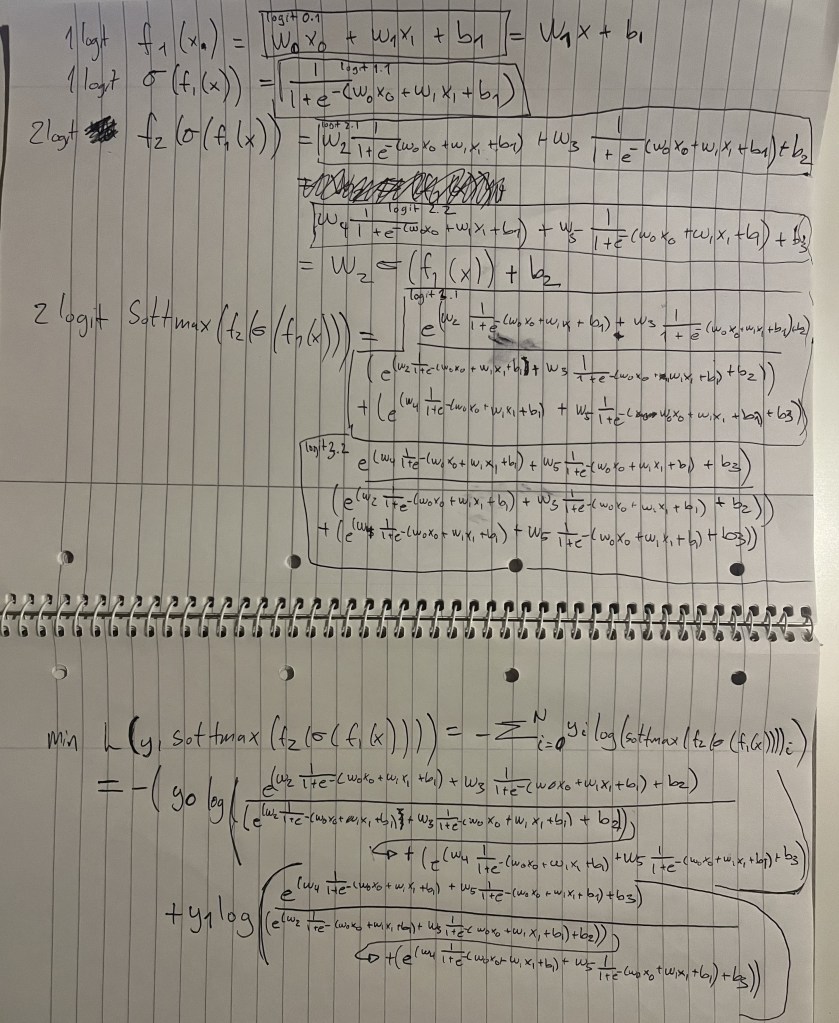 logit 0.1
1 logit f₁(x₀) = w₀x₀ + w₁x₁ + b₁ = W₁x + b₁
logit 1.1
1 logit σ(f₁(x)) = 1/(1+e^-(w₀x₀+w₁x₁+b₁))
logit 2.1
2 logit f₂(σ(f₁(x))) = w₂ 1/(1+e^-(w₀x₀+w₁x₁+b₁)) + w₃ 1/(1+e^-(w₀x₀+w₁x₁+b₁)) + b₂
logit 2.2
w₄ 1/(1+e^-(w₀x₀+w₁x₁+b₁)) + w₅ 1/(1+e^-(w₀x₀+w₁x₁+b₁)) + b₃
= W₂ σ(f₁(x)) + b₂
logit 3.1
2 logit Softmax(f₂(σ(f₁(x)))) = e^(w₂ 1/(1+e^-(w₀x₀+w₁x₁+b₁)) + w₃ 1/(1+e^-(w₀x₀+w₁x₁+b₁)) + b₂)
(e^(w₂ 1/(1+e^-(w₀x₀+w₁x₁+b₁)) + w₃ 1/(1+e^-(w₀x₀+w₁x₁+b₁)) + b₂))
+ (e^(w₄ 1/(1+e^-(w₀x₀+w₁x₁+b₁)) + w₅ 1/(1+e^-(w₀x₀+w₁x₁+b₁)) + b₃))
logit 3.2
e^(w₄ 1/(1+e^-(w₀x₀+w₁x₁+b₁)) + w₅ 1/(1+e^-(w₀x₀+w₁x₁+b₁)) + b₃)
(e^(w₂ 1/(1+e^-(w₀x₀+w₁x₁+b₁)) + w₃ 1/(1+e^-(w₀x₀+w₁x₁+b₁)) + b₂))
+ (e^(w₄ 1/(1+e^-(w₀x₀+w₁x₁+b₁)) + w₅ 1/(1+e^-(w₀x₀+w₁x₁+b₁)) + b₃))
min L(y, softmax(f₂(σ(f₁(x))))) = -Σᵢ₌₀ᴺ yᵢ log(softmax(f₂(σ(f₁(x))))ᵢ)
= -( y₀ log( e^(w₂ 1/(1+e^-(w₀x₀+w₁x₁+b₁)) + w₃ 1/(1+e^-(w₀x₀+w₁x₁+b₁)) + b₂)
(e^(w₂ 1/(1+e^-(w₀x₀+w₁x₁+b₁)) + w₃ 1/(1+e^-(w₀x₀+w₁x₁+b₁)) + b₂))
↪ + (e^(w₄ 1/(1+e^-(w₀x₀+w₁x₁+b₁)) + w₅ 1/(1+e^-(w₀x₀+w₁x₁+b₁)) + b₃)
+ y₁ log( e^(w₄ 1/(1+e^-(w₀x₀+w₁x₁+b₁)) + w₅ 1/(1+e^-(w₀x₀+w₁x₁+b₁)) + b₃)
(e^(w₂ 1/(1+e^-(w₀x₀+w₁x₁+b₁)) + w₃ 1/(1+e^-(w₀x₀+w₁x₁+b₁)) + b₂))
↪ + (e^(w₄ 1/(1+e^-(w₀x₀+w₁x₁+b₁)) + w₅ 1/(1+e^-(w₀x₀+w₁x₁+b₁)) + b₃))